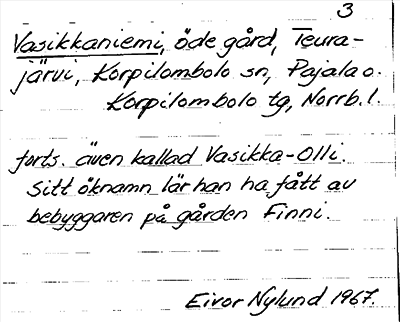 3
Vasikkaniemi, öde gård, Teura-
järvi, Korpilombolo sn, Pajala o.
Korpilombolo tg, Norrb. l.
forts. även kallad Vasikka-Olli.
Sitt öknamn lär han ha fått av
bebyggaren på gården Finni.
Eivor Nylund 1967.